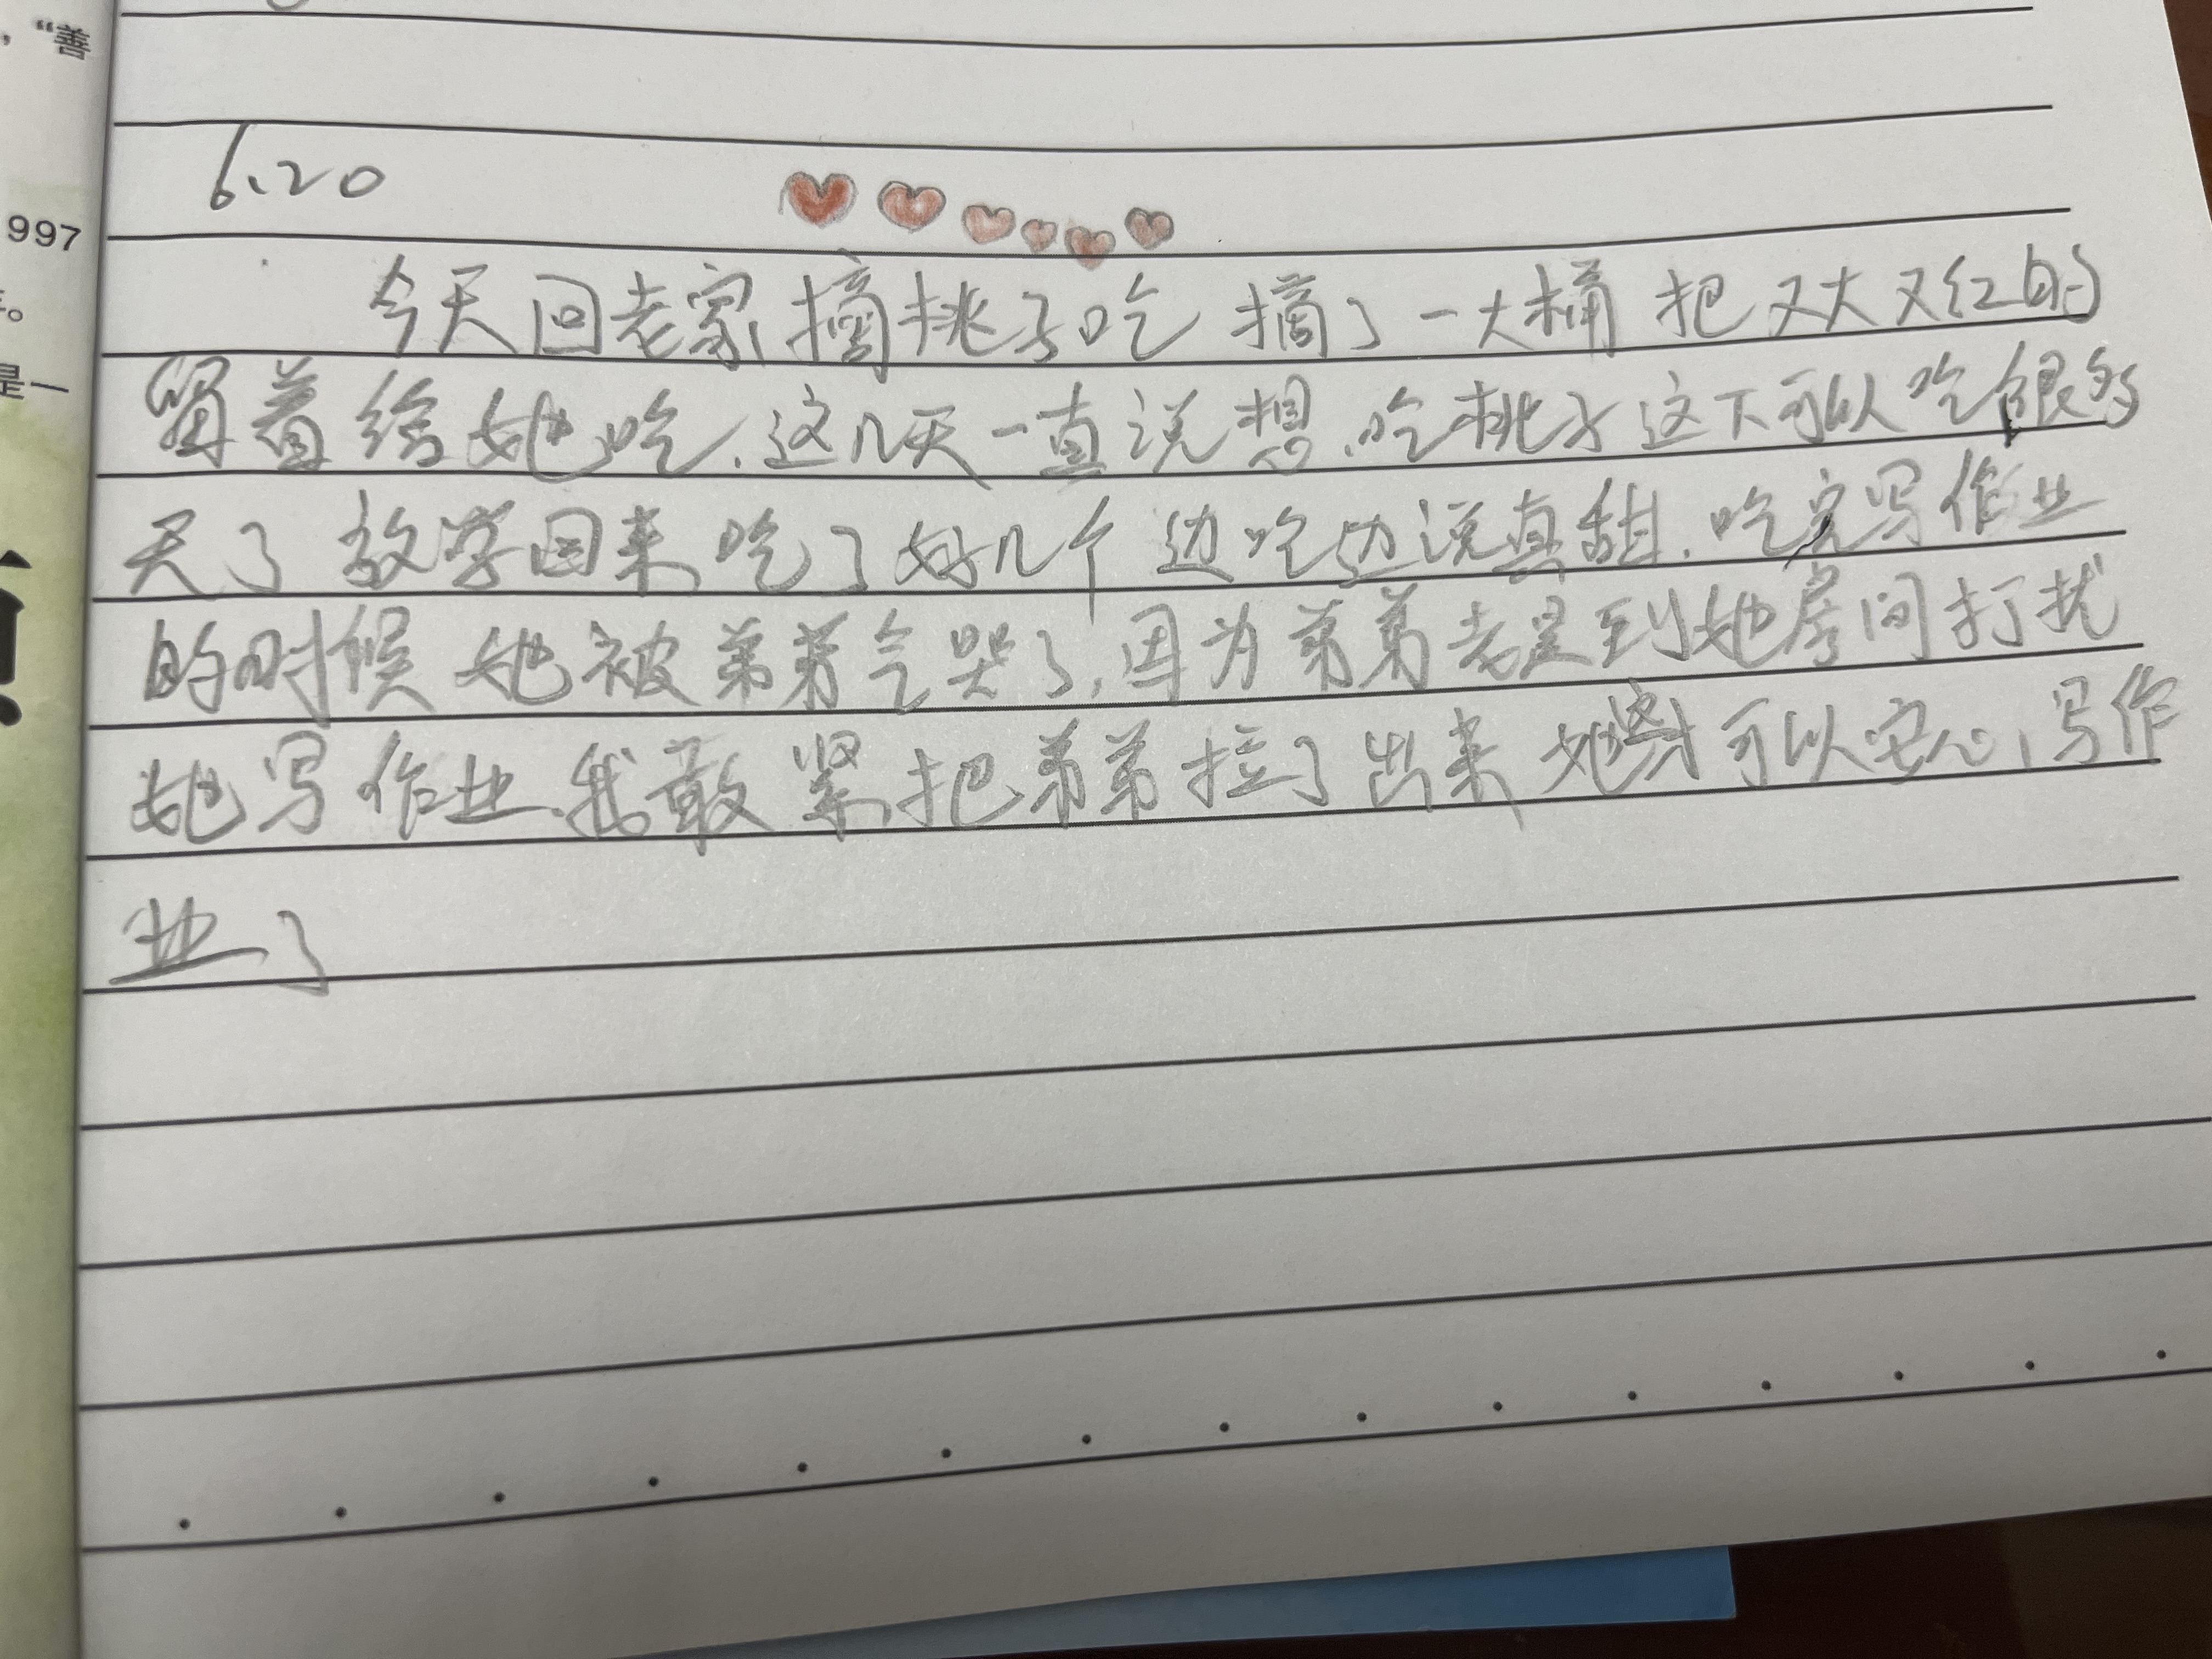 ，“善
6.20
997
今天回老家摘桃子吃 摘了一大桶 把又大又红的
。
是一
留着给她吃.这几天一直说想吃桃子这下可以吃很多
天了 放学回来吃了好几个 边吃边说真甜.吃完写作业
的时候 她被弟弟气哭了,因为弟弟老是到她房间打扰
她写作业.我敢紧把弟弟拉了出来 她才可以安心写作
业了